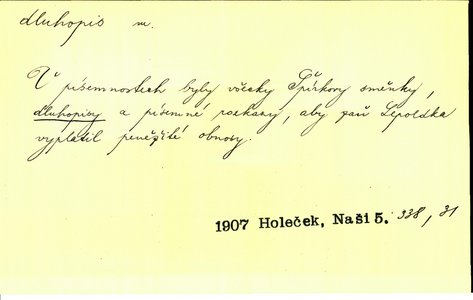 dluhopis m.
V písemnostech byly všecky Špirkovy směnky,
dluhopisy a písemné rozkazy, aby pan Lepolda
vyplatil peněžité obnosy.
1907 Holeček, Naši 5. 338, 31